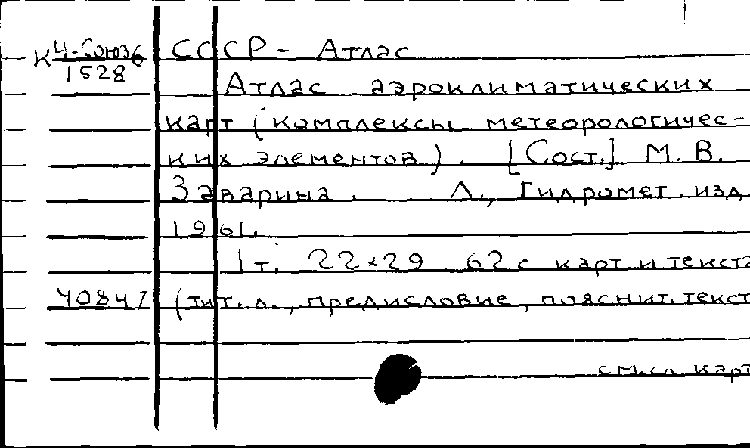 К Ч-Союз6 СССР - Атлас
1528
Атлас аэроклиматических
карт (комплексы метеорологичес-
ких элементов). [Сост.] М. В.
Заварина. Л., Гидромет. изд
1961.
1 т. 22×29 62 с карт и текста
40847 (тит. л., предисловие, пояснит. текст
карт